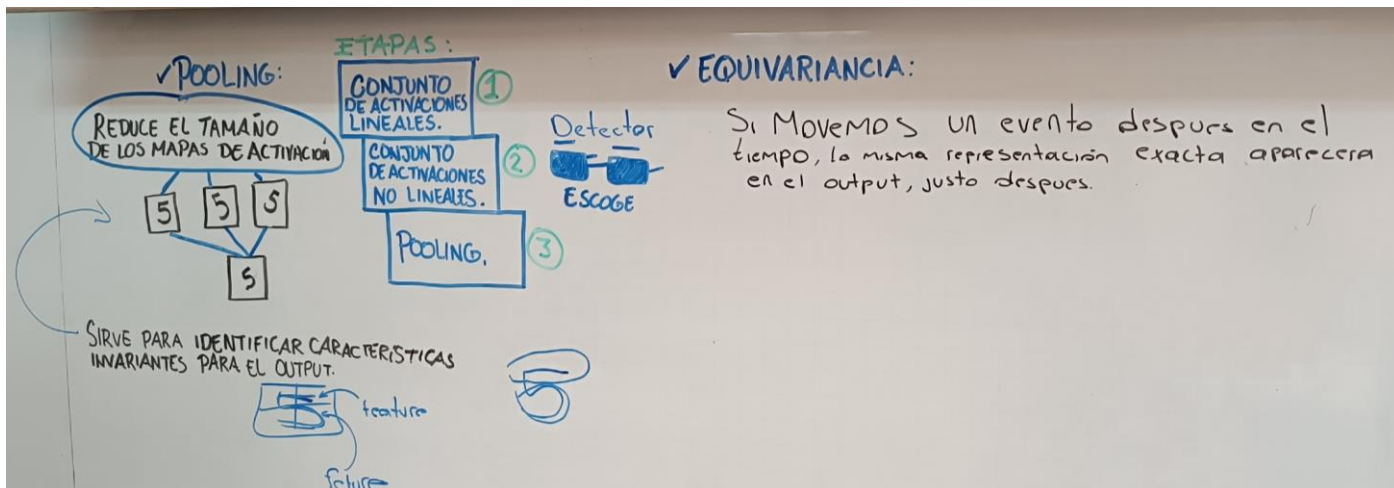 ✓ POOLING:
REDUCE EL TAMAÑO
DE LOS MAPAS DE ACTIVACIÓN
5 5 5
5
SIRVE PARA IDENTIFICAR CARACTERÍSTICAS
INVARIANTES PARA EL OUTPUT.
5
feature
feture
5
ETAPAS:
CONJUNTO
DE ACTIVACIONES
LINEALES.
1
CONJUNTO
DE ACTIVACIONES
NO LINEALES.
2
POOLING.
3
Detector
ESCOGE
✓ EQUIVARIANCIA:
Si MOVEMOS un evento despues en el
tiempo, la misma representación exacta aparecera
en el output, justo despues.